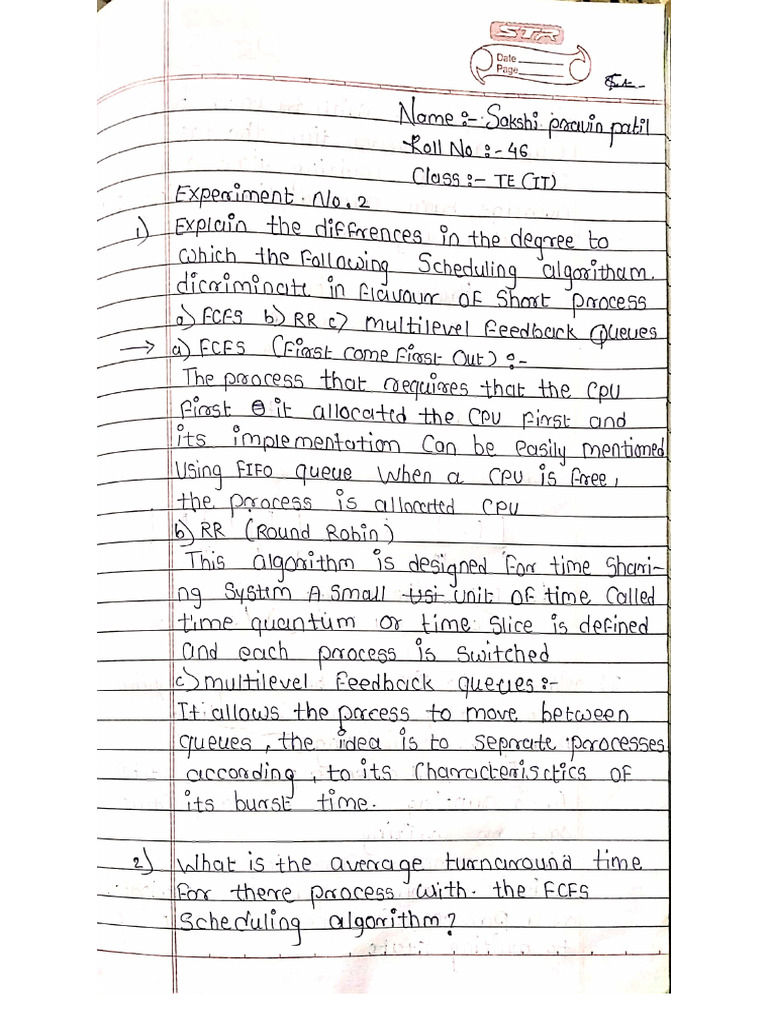 STR
Date
Page
Name :- Sakshi pravin patil
Roll No :- 46
Class :- TE (IT)
Experiment No. 2
1) Explain the diffrences in the degree to
which the following Scheduling algoritham.
dicriminate in flavour of short process
a) FCFS b) RR c) multilevel feedback Queues
→ a) FCFS (First come First Out) :-
The process that requires that the CPU
first it allocated the CPU first and
its implementation can be easily mentioned
Using FIFO queue when a CPU is free,
the process is allocated CPU
b) RR (Round Robin)
This algorithm is designed for time shari-
ng system A small usi unit of time called
time quantum or time slice is defined
and each process is switched
c) multilevel feedback queues :-
It allows the porcess to move between
queues, the idea is to seprate processes
according, to its characterisctics of
its burst time.
2) What is the average turnaround time
for there process with. the FCFS
scheduling algorithm?